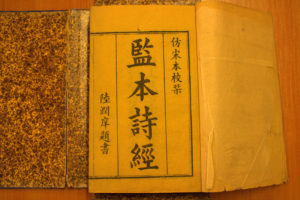 仿宋本校栞
監本詩經
陸潤庠題書